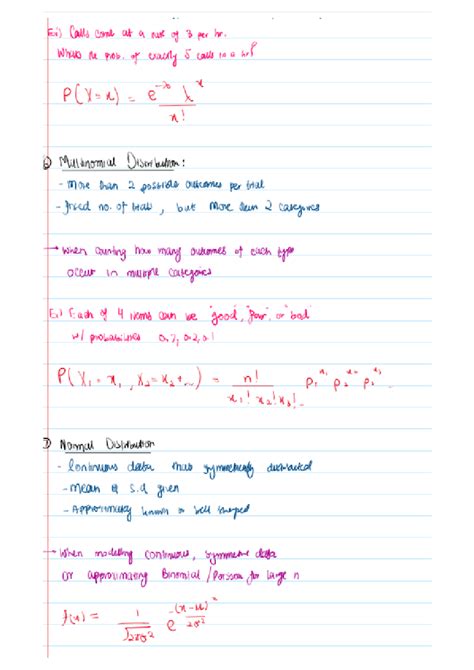 Ex) Calls come at a rate of 3 per hr.
What's the prob. of exactly 5 calls in a hr?
P(X=x) = e^-λ λ^x / x!
⑥ Multinomial Distribution:
- More than 2 possible outcomes per trial
- fixed no. of trials, but more than 2 categories
→ When counting how many outcomes of each type
occur in multiple categories
Ex) Each of 4 items can be "good", "fair", or "bad"
w/ probabilities 0.7, 0.2, 0.1
P(X₁=x₁, X₂=x₂, ...) = n! / x₁! x₂! x₃!.. p₁^x₁ p₂^x₂ p₃^x₃ ..
Normal Distribution
- Continuous data symmetrically distributed
- Mean & s.d given
- Approximately known or bell shaped
→ When modelling continuous, symmetric data
or approximating Binomial / Poisson for large n
f(x) = 1 / √2πσ² e^-(x-μ)²/2σ²